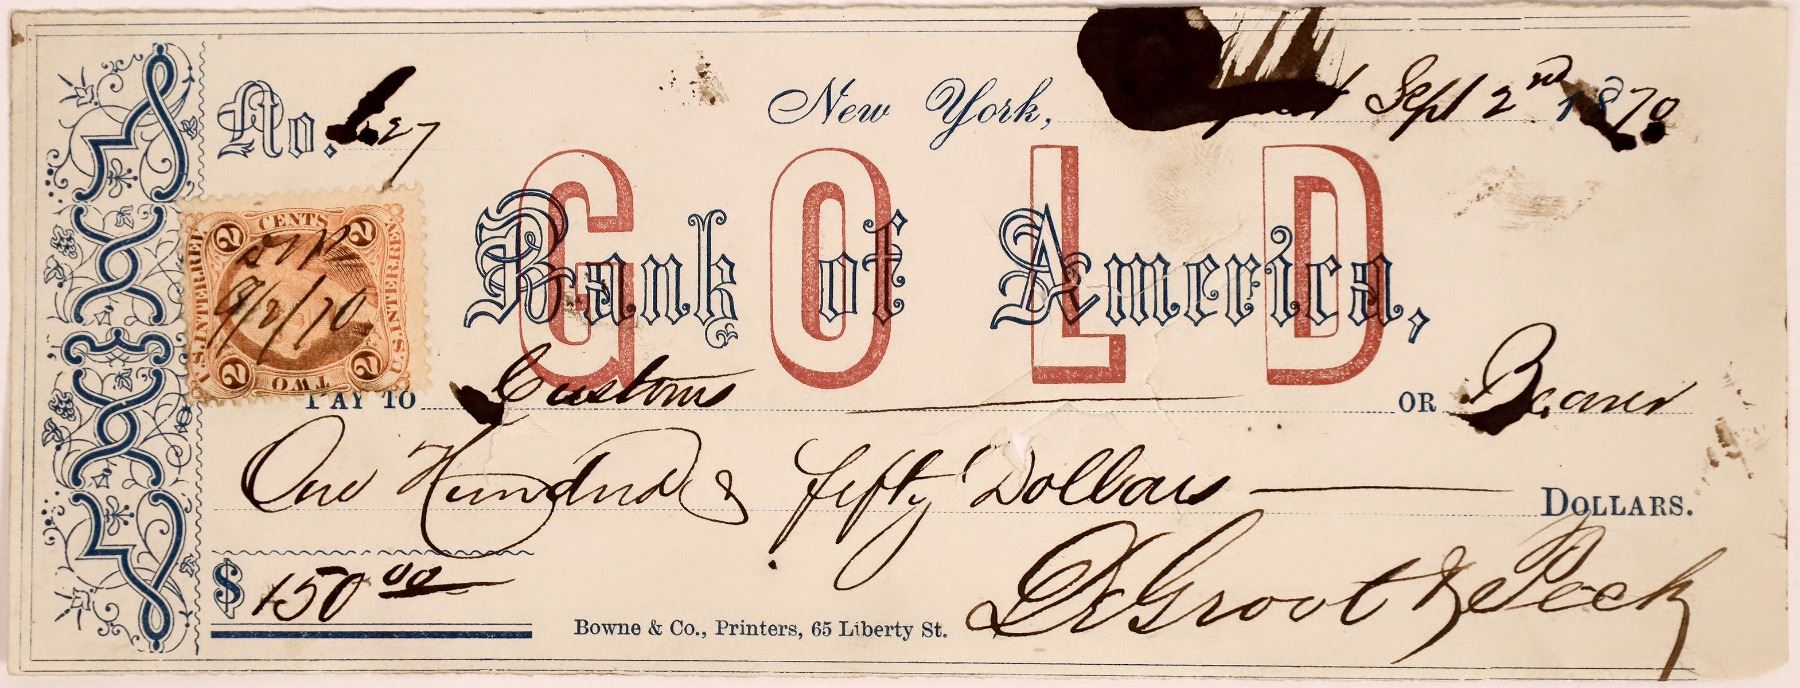 No. 627
New York, Sept 2nd 1870
GOLD
Bank of America,
2 CENTS 2
U.S. INTER. REV. U.S. INTER. REV.
9/2/70
2 TWO 2
PAY TO Customs OR Bearer
One Hundred & fifty Dollars DOLLARS.
$ 150 00
DeGroot & Peck
Bowne & Co., Printers, 65 Liberty St.